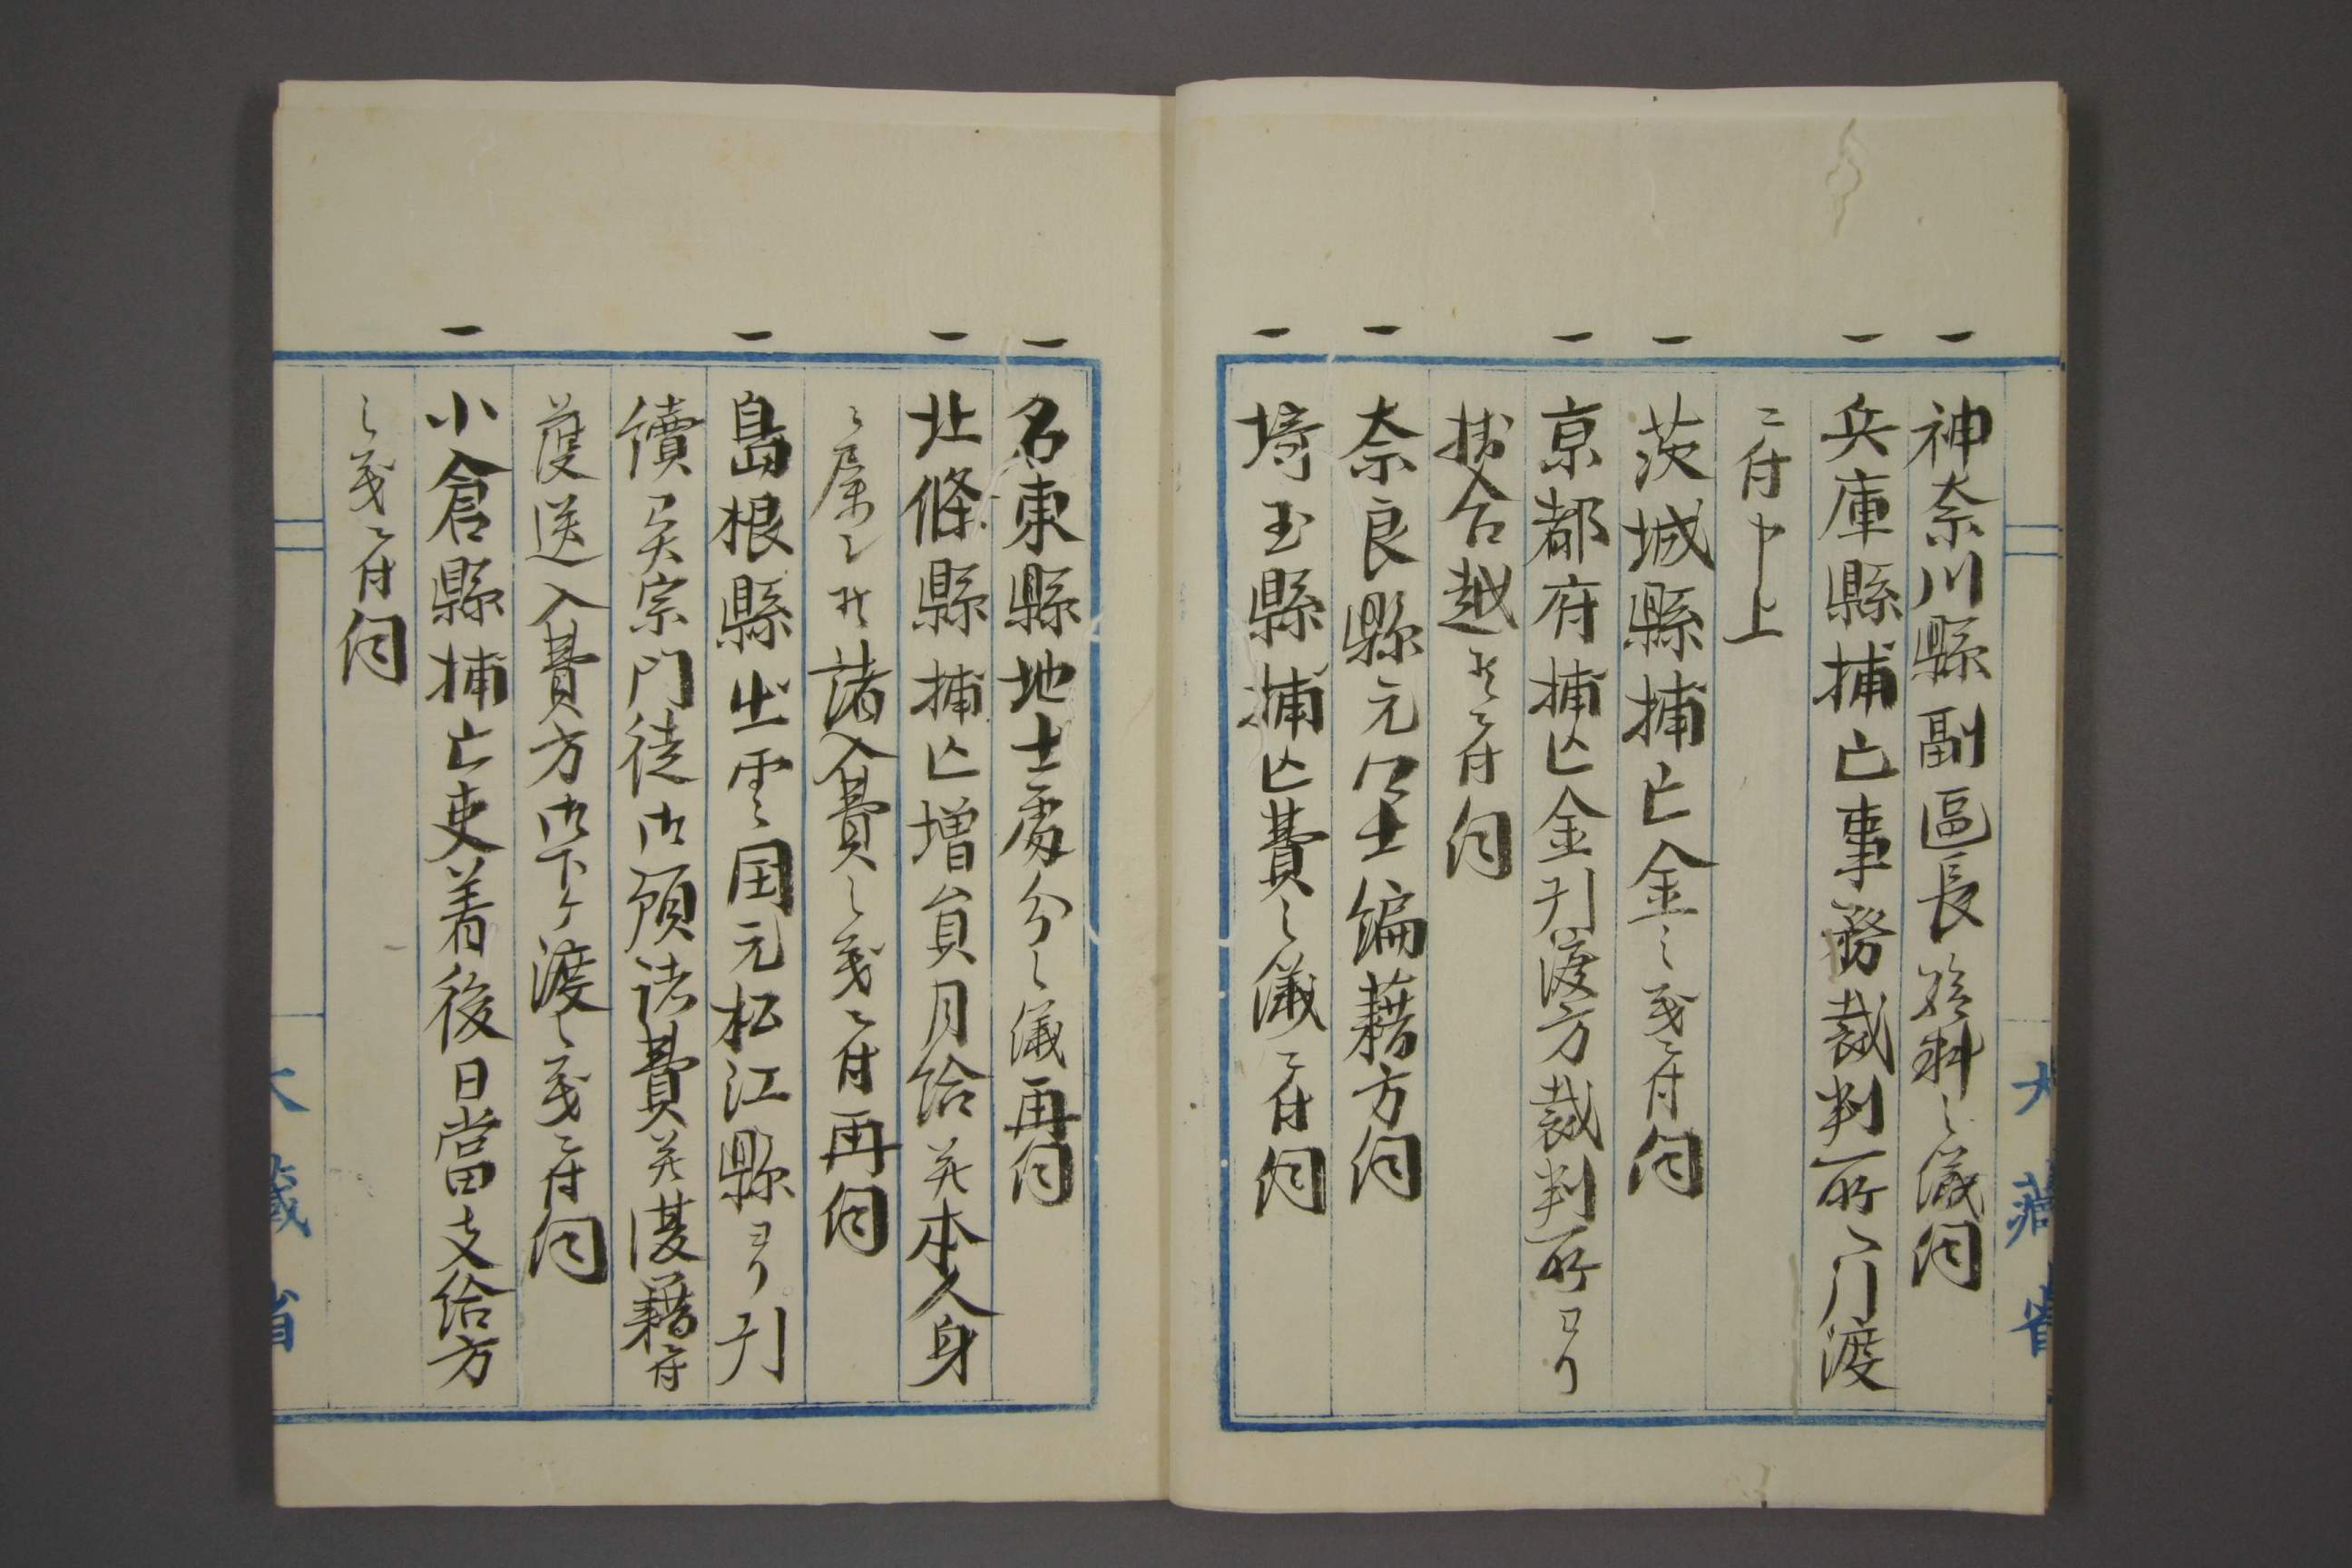 一 神奈川縣副區長給料之儀伺
一 兵庫縣捕亡事務裁判所ヘ引渡
ニ付申上
一 茨城縣捕亡金之義ニ付伺
一 京都府捕亡金引渡方裁判所ヨリ
掛合越候ニ付伺
一 奈良縣元口士編籍方伺
一 埼玉縣捕亡費之儀ニ付伺
大藏省
一 名東縣地士處分之儀再伺
一 北條縣捕亡増員月給并本人身
ニ属シ候諸入費之義ニ付再伺
一 島根縣出雲国元松江縣ヨリ引
續異宗門徒御預諸費并復籍ニ付
護送入費方御下ケ渡之義ニ付伺
一 小倉縣捕亡吏着後日當支給方
之義ニ付伺
大藏省